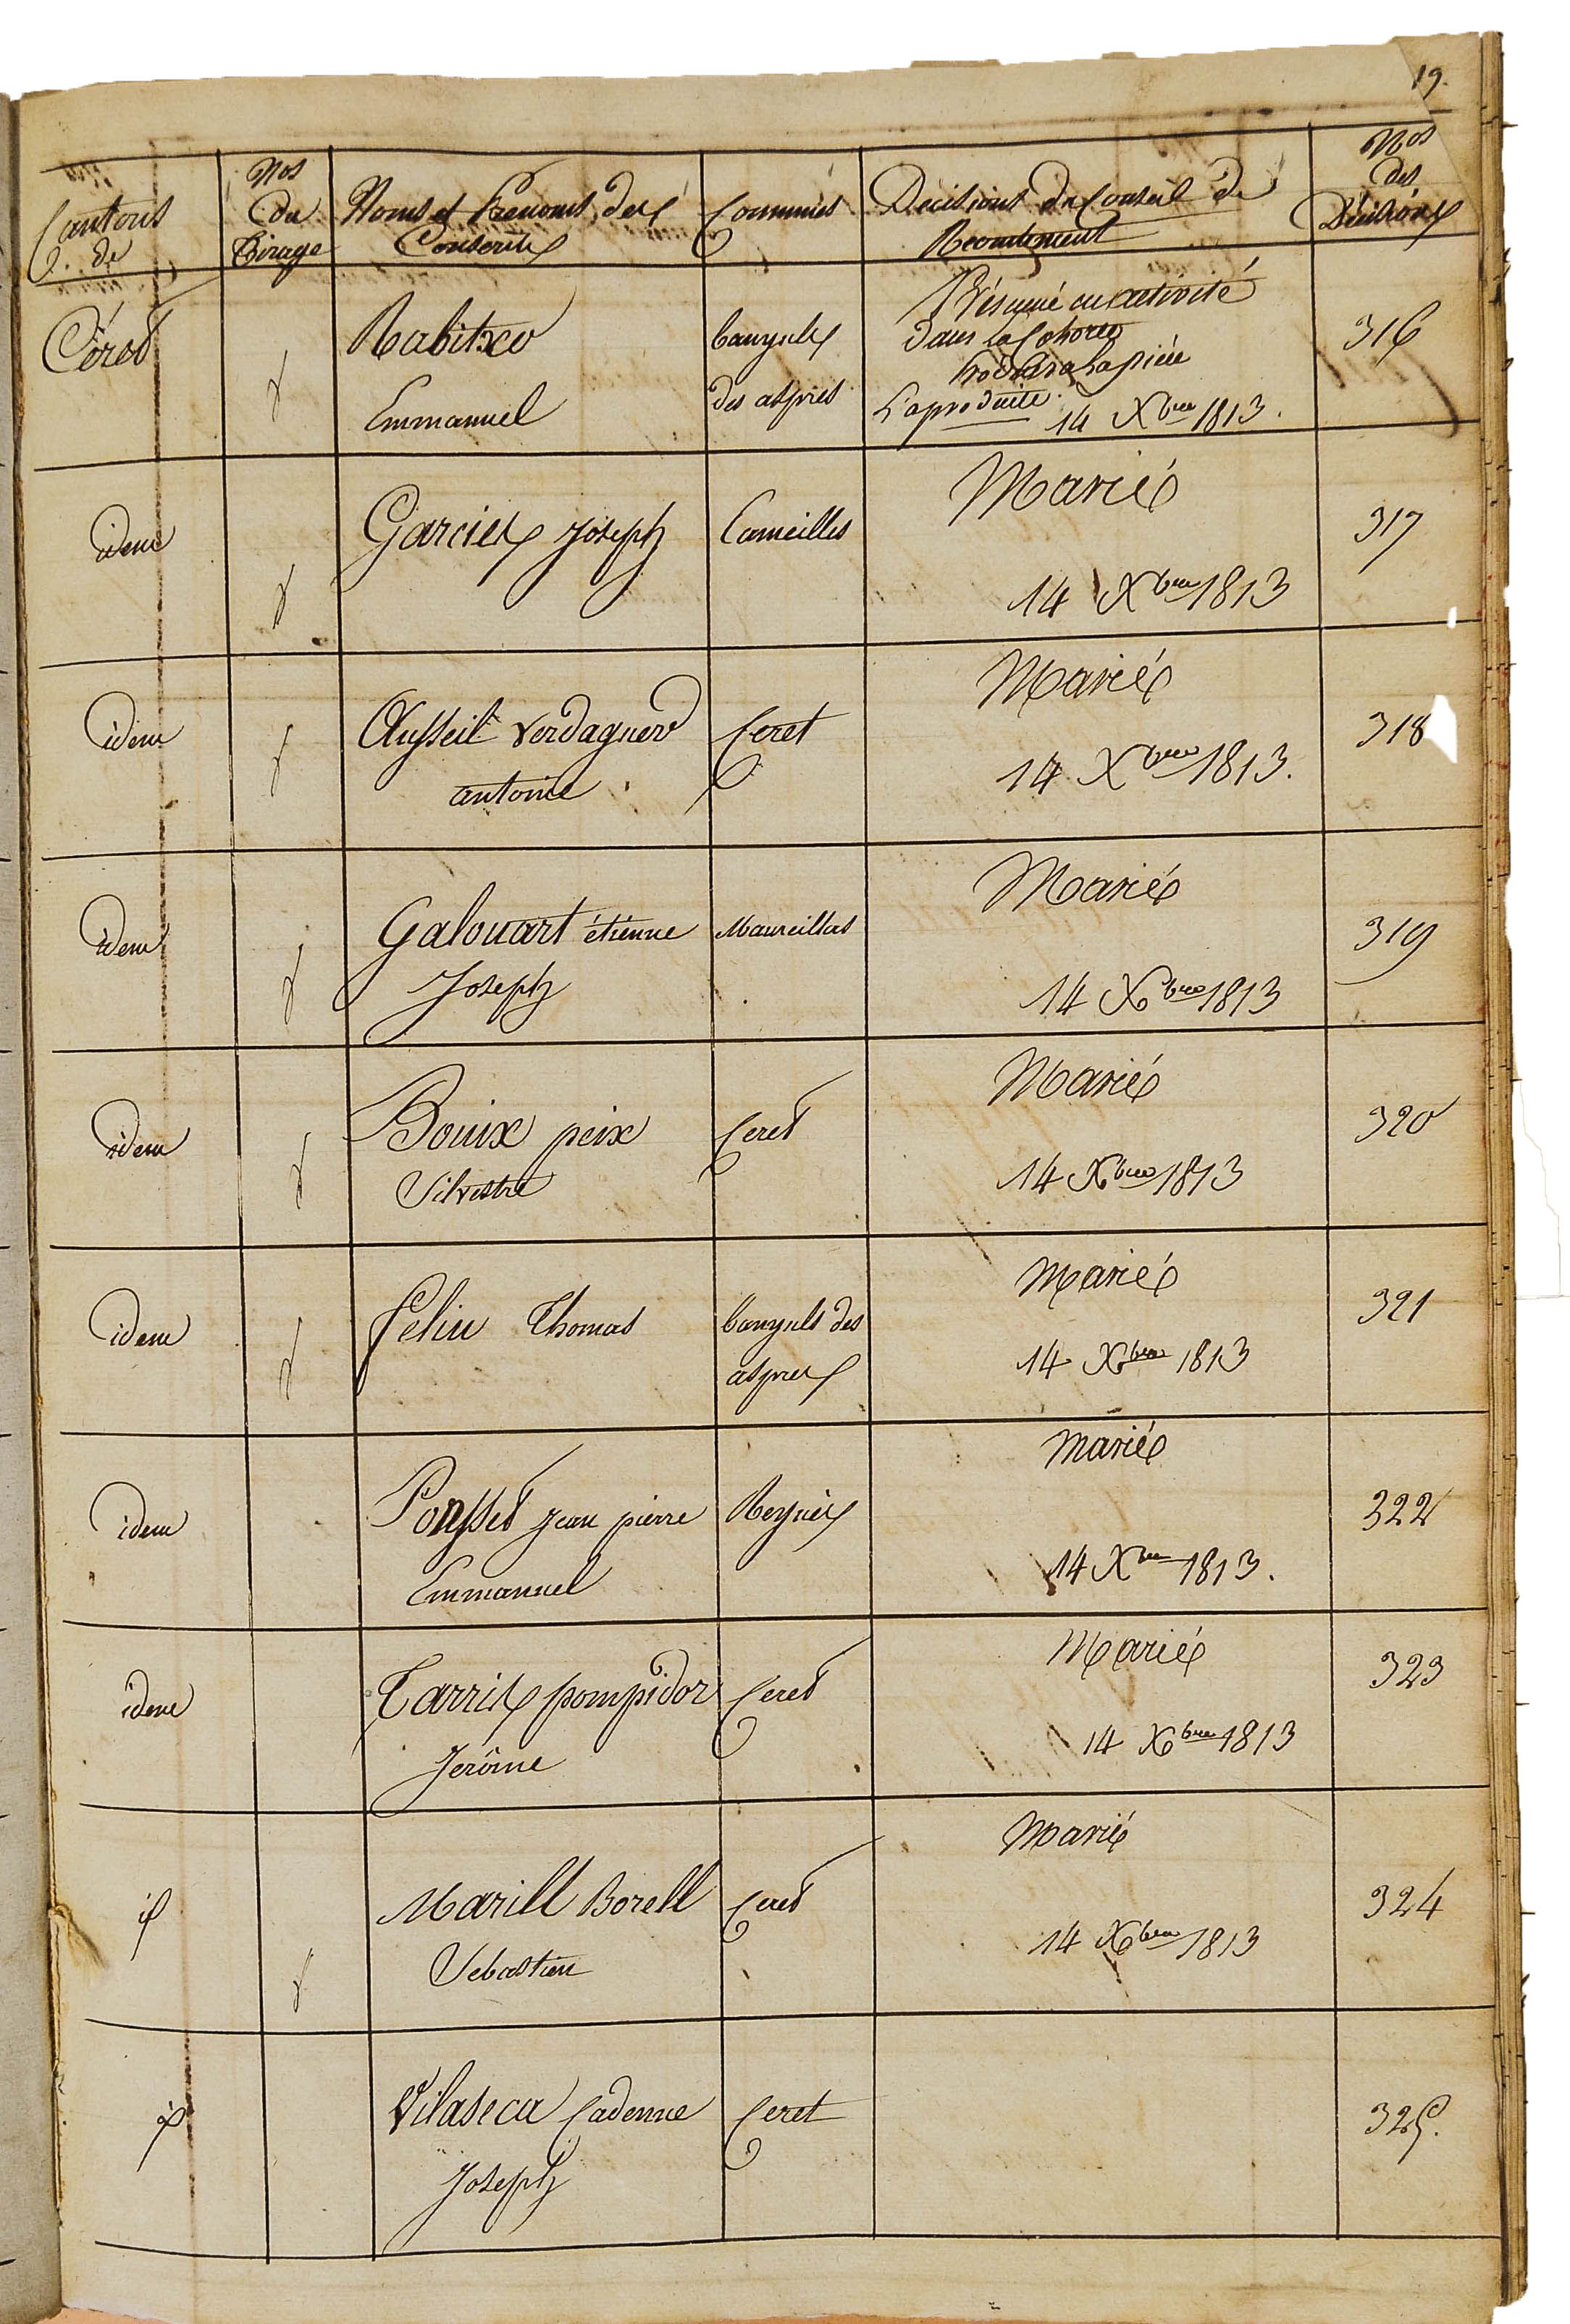 19.
Cantons de
Nos du Tirage
Noms et Prenoms des Conscrits
Communes
Décisions du Conseil de Recrutement
Nos des Décisions
Céret
Rabitxo
Emmanuel
banyuls
des aspres
Présumé en activité
dans la Cohorte
la pièce
L'a produite
14 Xbre 1813.
316
idem
Garcies Joseph
Cameilles
Marié
14 Xbre 1813
317
idem
Ausseil Verdaguer
antoine
Ceret
Marié
14 Xbre 1813.
318
idem
Galouart étienne
Joseph
Maureillas
Marié
14 Xbre 1813
319
idem
Bouix peix
Silvestre
Ceret
Marié
14 Xbre 1813
320
idem
feliu Thomas
banyuls des
aspres
Marié
14 Xbre 1813
321
idem
Ponsset jean pierre
Emmanuel
Reynès
Marié
14 Xbre 1813.
322
idem
Tarris pompidor
Jerôme
Ceret
Marié
14 Xbre 1813
323
id
Marill Borell
Sebastien
Ceret
Marié
14 Xbre 1813
324
id
Vilaseca Cadenne
Joseph
Ceret
325.